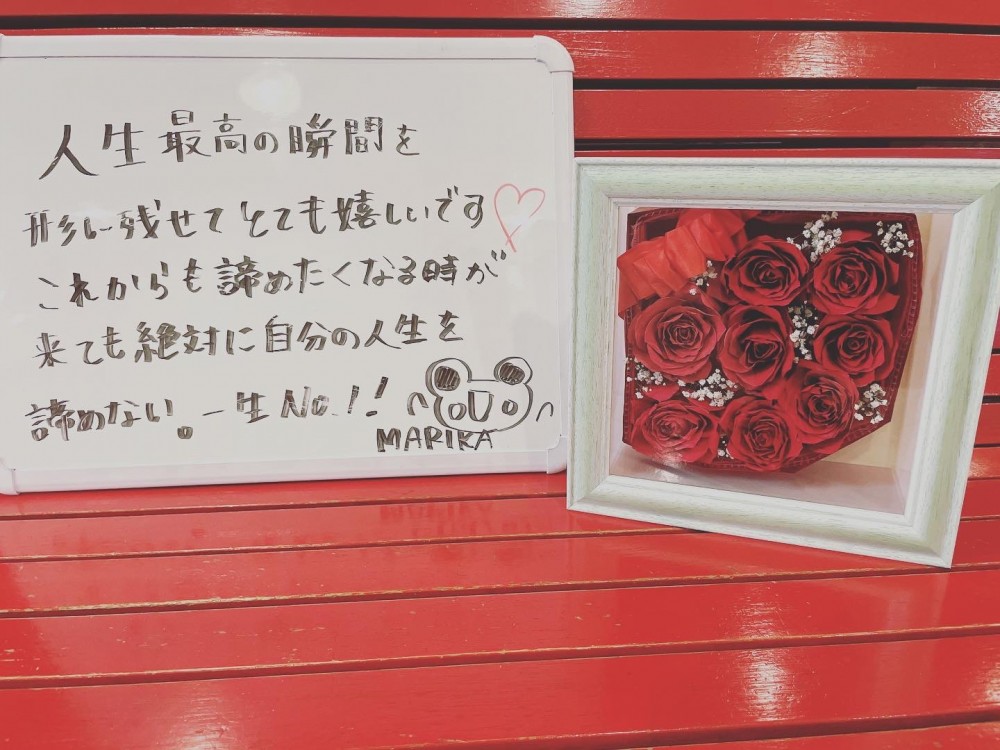 人生最高の瞬間を
形に残せてとても嬉しいです♡
これからも諦めたくなる時が
来ても絶対に自分の人生を
諦めない。一生No.1!
MARIKA